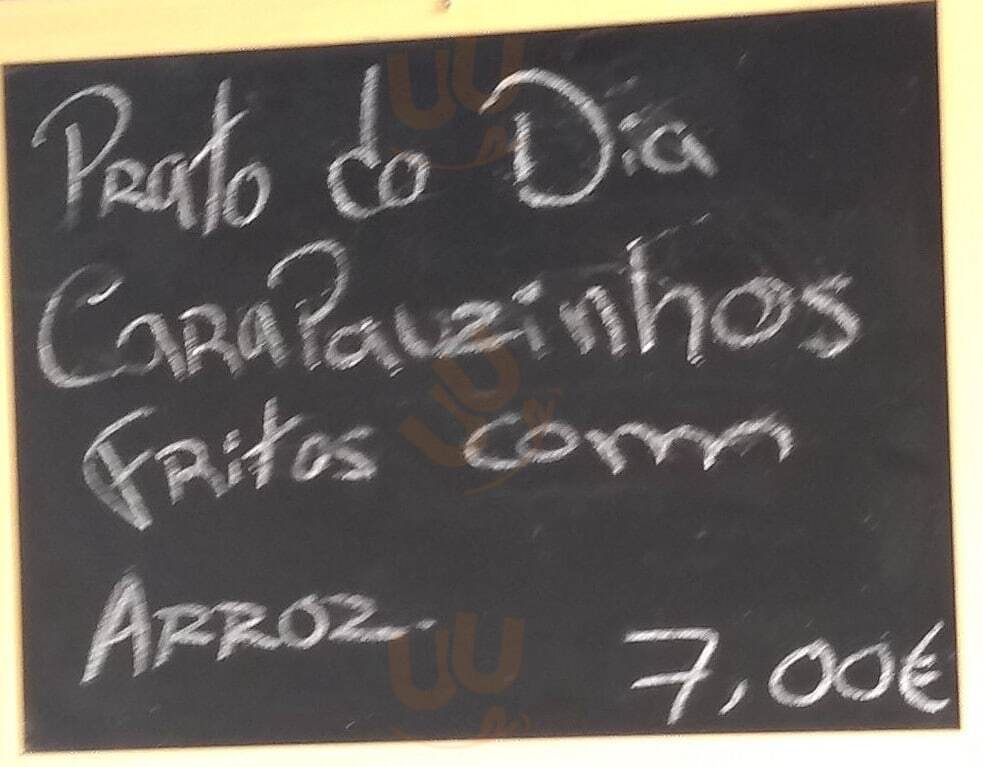 Prato do Dia
Carapauzinhos
Fritos com
Arroz.
7,00€